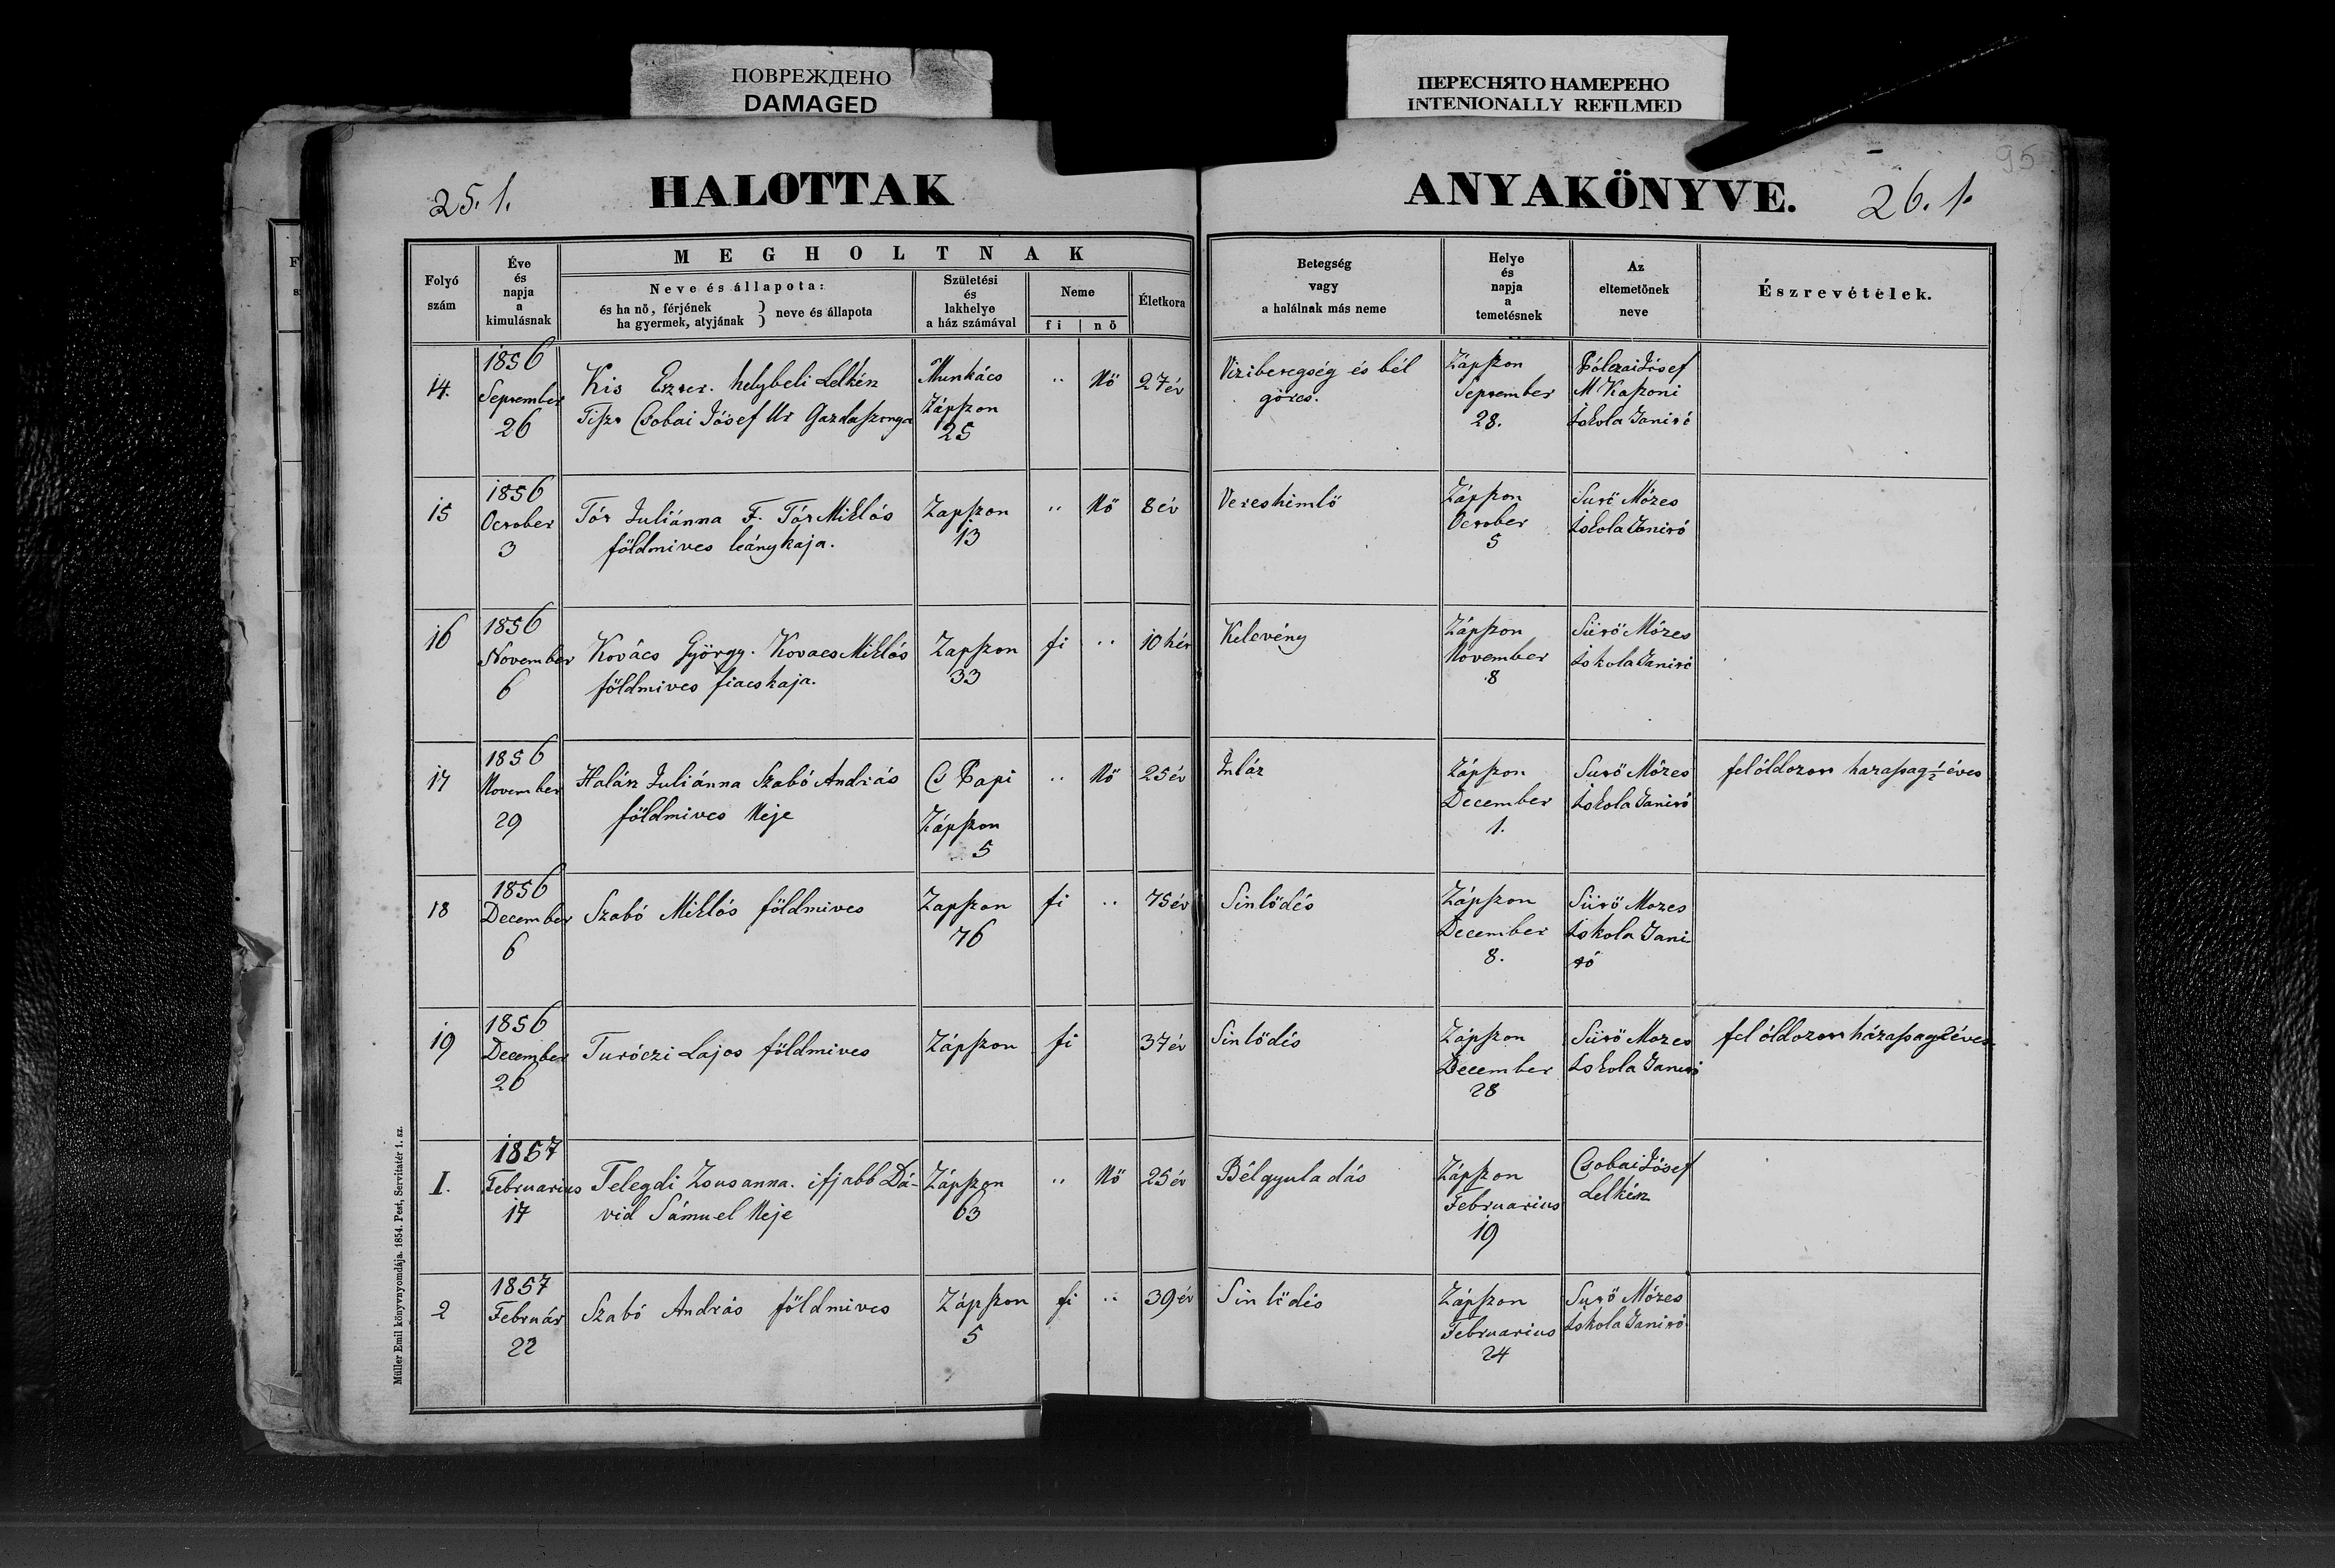 ПОВРЕЖДЕНО
DAMAGED
ПЕРЕСНЯТО НАМЕРЕНО
INTENIONALLY REFILMED
95
25. l.
HALOTTAK
ANYAKÖNYVE.
26. l.
Folyó
szám
Éve
és
napja
a
kimulásnak
MEGHOLTNAK
Neve és állapota:
és ha nő, férjének
ha gyermek, atyjának } neve és állapota
Születési
és
lakhelye
a ház számával
Neme
fi | nő
Életkora
Betegség
vagy
a halálnak más neme
Helye
és
napja
a
temetésnek
Az
eltemetőnek
neve
Észrevételek.
14.
1856
September
26
Kis Eszter. helybeli Lelkész
Tiszt Csobai Jósef Ur Gazdaszonya
Munkács
Zápszon
25
" Nő 27 év
Viziberegség és bél
görcs.
Zápszon
September
28.
Pólczai Jósef
M Kaszoni
Iskola Tanitó
15
1856
October
3
Tór Juliánna F. Tór Miklós
földmives leánykaja.
Zapszon
13
" Nő 8 év
Vereshimlő
Zápszon
October
5
Surő Mózes
Iskola Tanitó
16
1856
November
6
Kovács György. Kovacs Miklós
földmives fiacskaja.
Zapszon
33
fi " 10 hét
Kelevény
Zápszon
November
8
Sürő Mózes
Iskola Tanitó
17
1856
November
29
Halász Juliánna Szabó András
földmives Neje
Cs Papi
Zápszon
5
" Nő 25 év
Inláz
Zápszon
December
1.
Surő Mózes
Iskola Tanitó
feloldozott hazassag ½ éves
18
1856
December
6
Szabó Miklós földmives
Zapszon
76
fi " 75 év
Sinlődés
Zápszon
December
8.
Sürő Mozes
Iskola Tani
tó
19
1856
December
26
Turóczi Lajos földmives
Zápszon
fi 37 év
Sinlődés
Zápszon
December
28
Sürő Mozes
Iskola Tanitó
fel óldozott házassag 2 éves
I.
1857
Februarius
17
Telegdi Zsusanna. ifjabb Dá-
vid Sámuel Neje
Zápszon
63
" Nő 25 év
Bélgyuladás
Zápszon
Februarius
19
Csobai Jósef
Lelkész
2
1857
Február
22
Szabó András földmives
Zápszon
5
fi " 39 év
Sinlődés
Zápszon
Februarius
24
Surő Mózes
Iskola Tanitó
Müller Emil könyvnyomdája. 1854. Pest, Servitatér 1. sz.